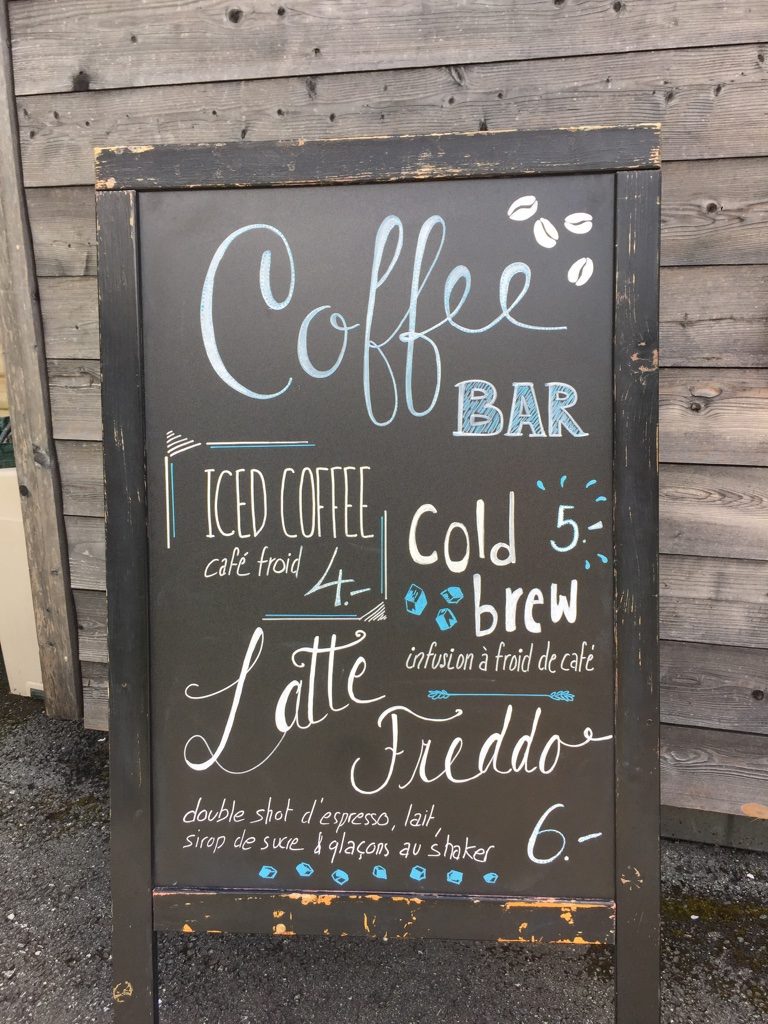 Coffee
BAR
ICED COFFEE
café froid
4.-
Cold
brew
5.-
infusion à froid de café
Latte
Freddo
double shot d'espresso, lait,
sirop de sucre & glaçons au shaker
6.-